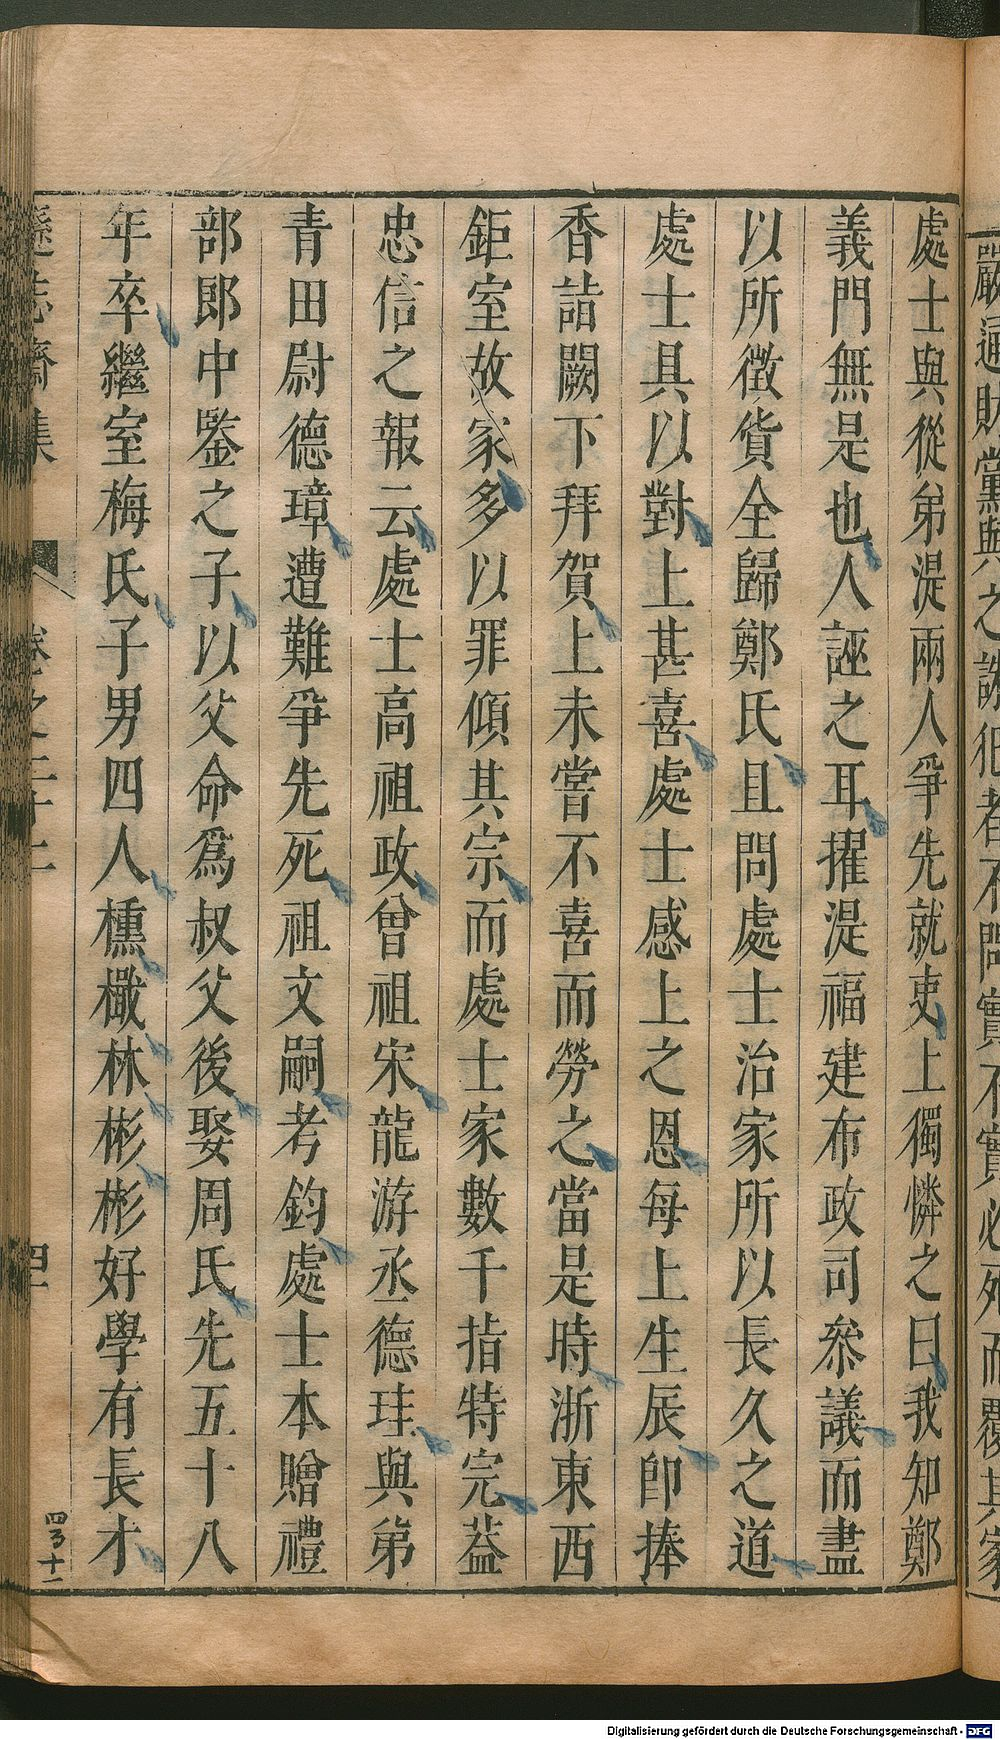 嚴通財黨與之誅犯者不問實不實必死而覆其家
處士與從弟湜兩人爭先就吏上獨憐之曰我知鄭
義門無是也人誣之耳擢湜福建布政司叅議而盡
以所徵貨全歸鄭氏且問處士治家所以長久之道
處士具以對上甚喜處士感上之恩每上生辰卽捧
香詣闕下拜賀上未嘗不喜而勞之當是時浙東西
鉅室故家多以罪傾其宗而處士家數千指特完葢
忠信之報云處士高祖政曾祖宋龍游丞德珪與弟
青田尉德璋遭難爭先死祖文嗣考鈞處士本贈禮
部郎中鑒之子以父命爲叔父後娶周氏先五十八
年卒繼室梅氏子男四人櫄檥林彬彬好學有長才
遜志齋集 卷之二十二 四十一
Digitalisierung gefördert durch die Deutsche Forschungsgemeinschaft - DFG